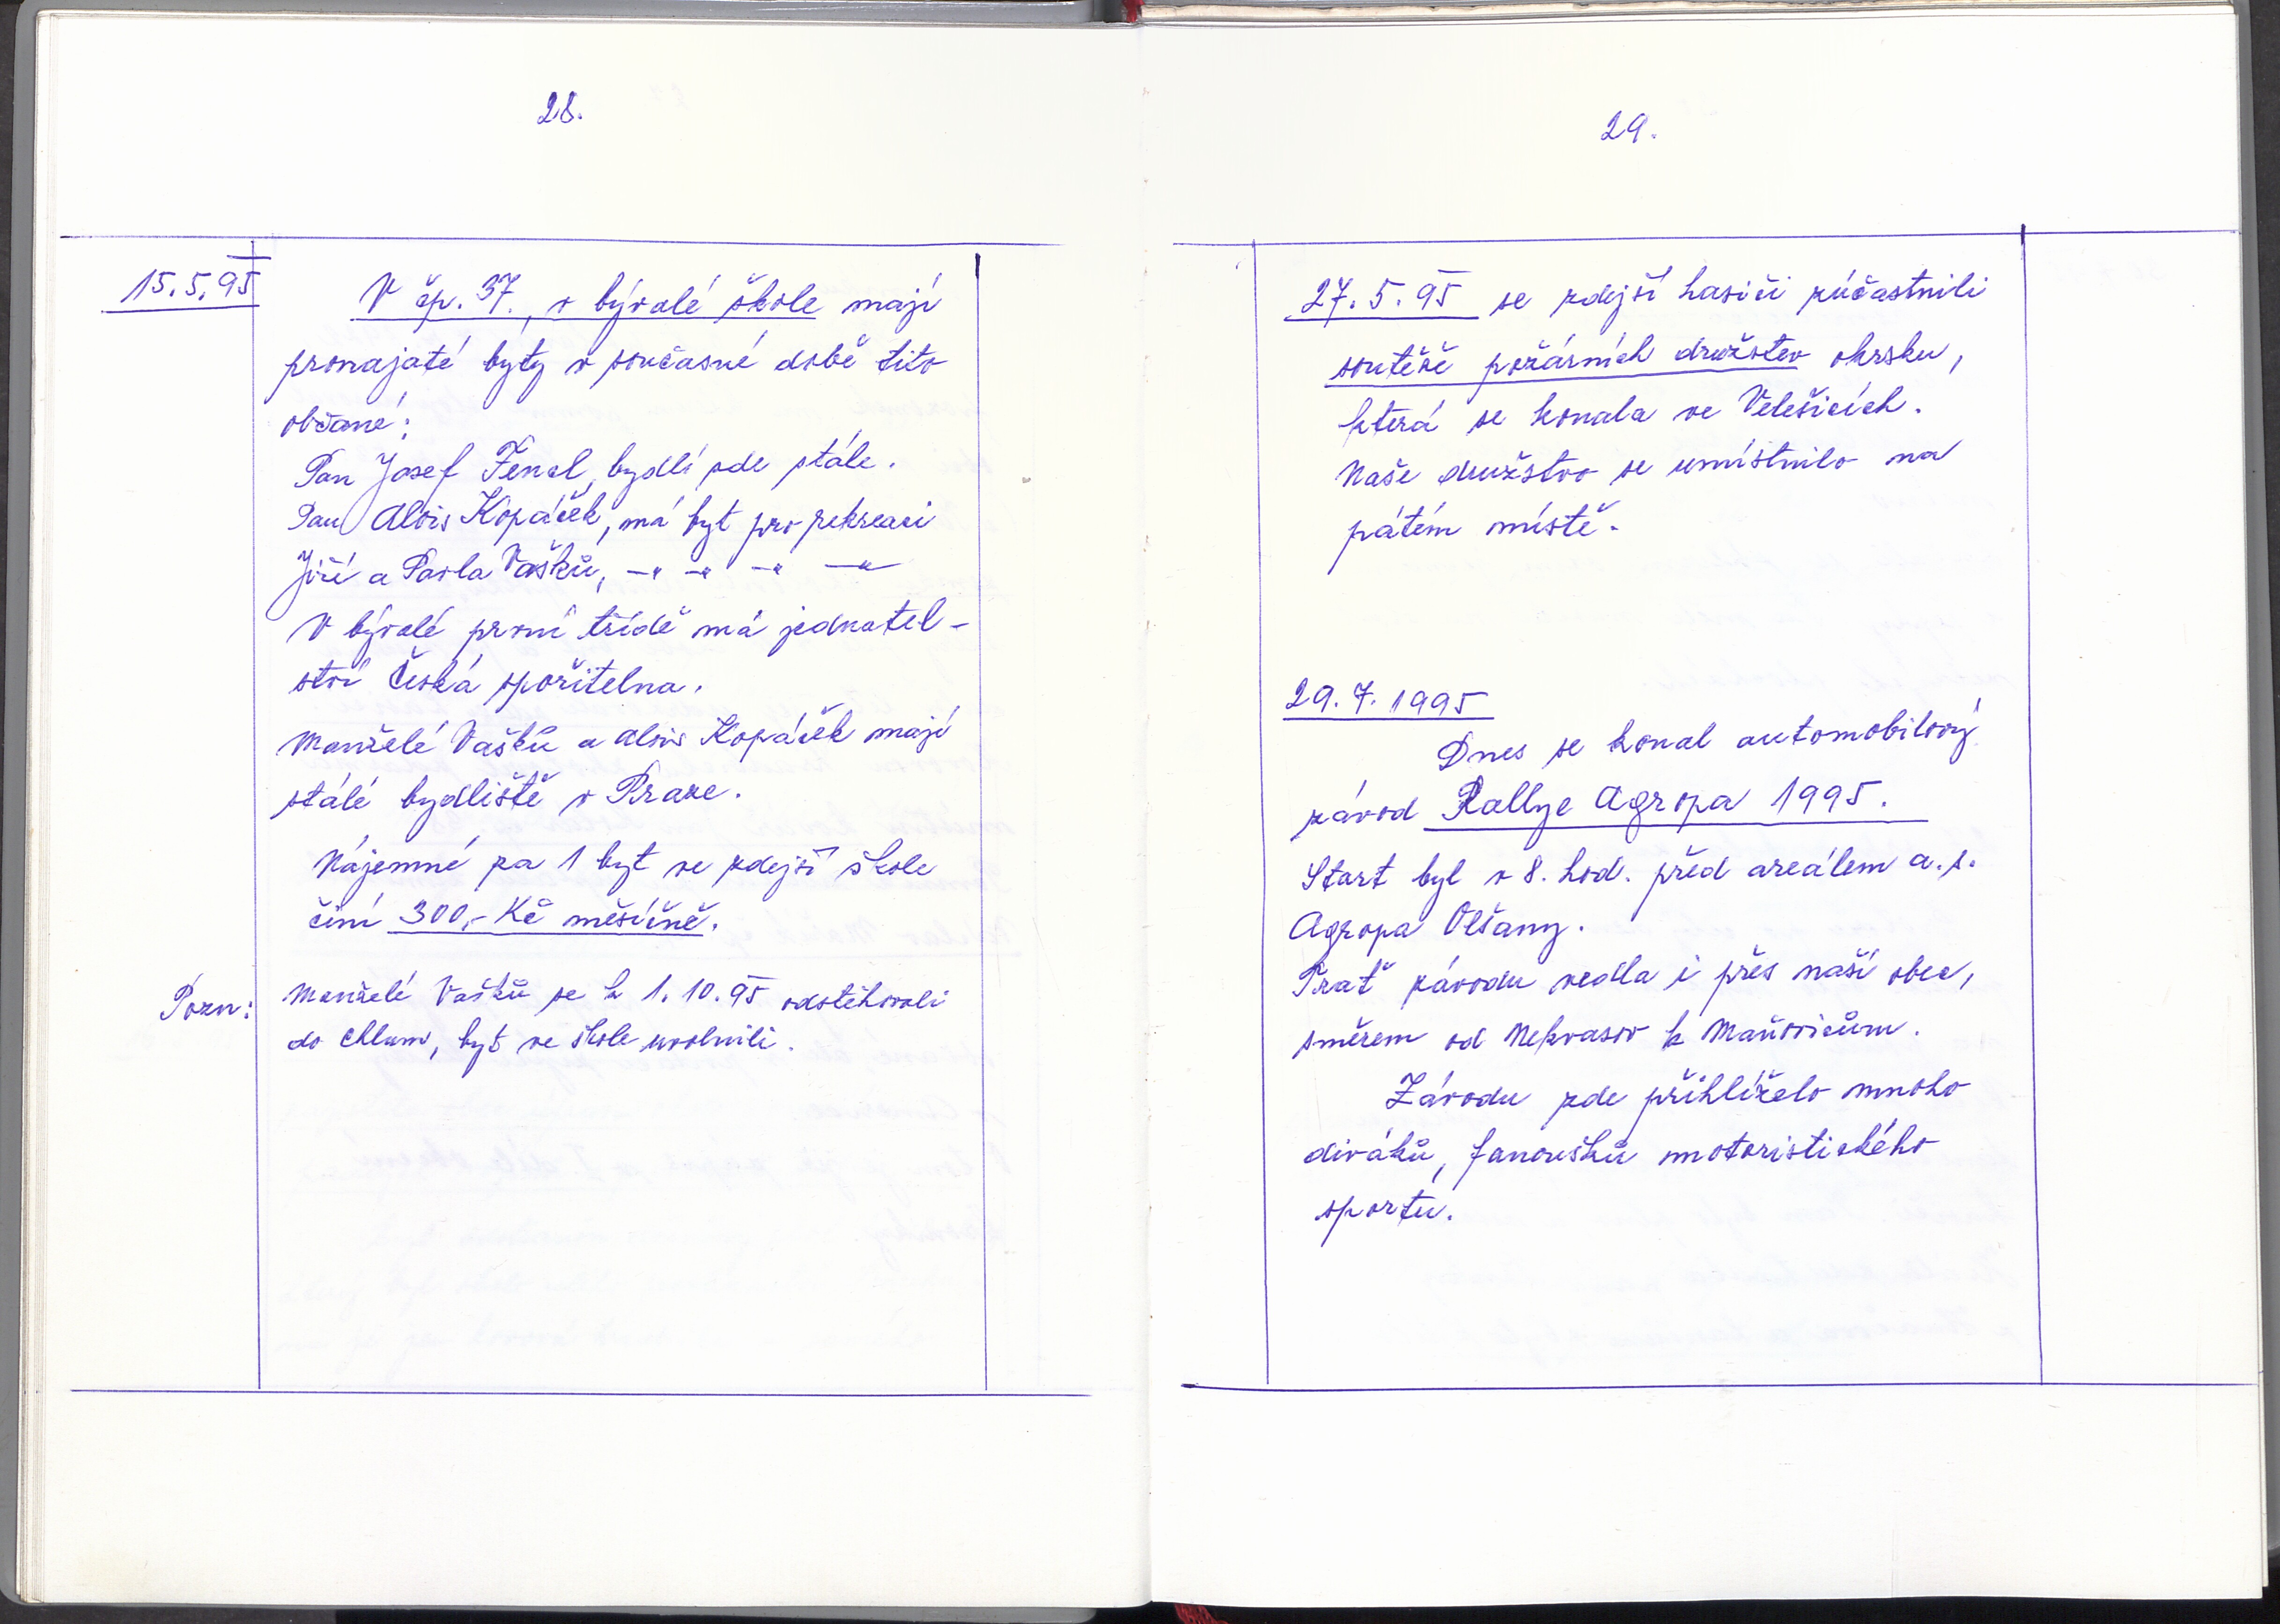 28.
15.5.95
V čp. 37., v bývalé škole mají
pronajaté byty v současné době tito
občané:
Pan Josef Fencl, bydlí zde stále.
Pan Alois Kopáček, má byt pro rekreaci
Jiří a Pavla Vašků, -"- -"- -"- -"-
V bývalé první třídě má jednatel-
ství Česká spořitelna.
Manželé Vašků a Alois Kopáček mají
stálé bydliště v Praze.
Nájemné za 1 byt ve zdejší škole
činí 300,- Kč měsíčně.
Pozn: Manželé Vašků se k 1.10.95 odstěhovali
do Chlumu, byt ve škole uvolnili.
29.
27.5.95 se zdejší hasiči zúčastnili
soutěže požárních družstev okrsku,
která se konala ve Velešicích.
Naše družstvo se umístnilo na
pátém místě.
29.7.1995
Dnes se konal automobilový
závod Rallye Agropa 1995.
Start byl v 8. hod. před areálem a.s.
Agropa Olšany.
Trať závodu vedla i přes naší obec,
směrem od Nekvasov k Maňovicům.
Závodu zde přihlíželo mnoho
diváků, fanoušků motoristického
sportu.